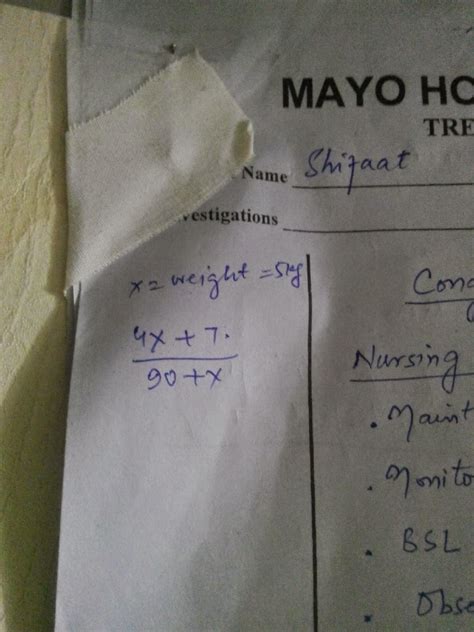 MAYO HO
TRE
Name Shifaat
vestigations
x = weight = 5kg
4x + 7.
90 + x
Cong
Nursing
. Maint
. Monito
. BSL
. Obse